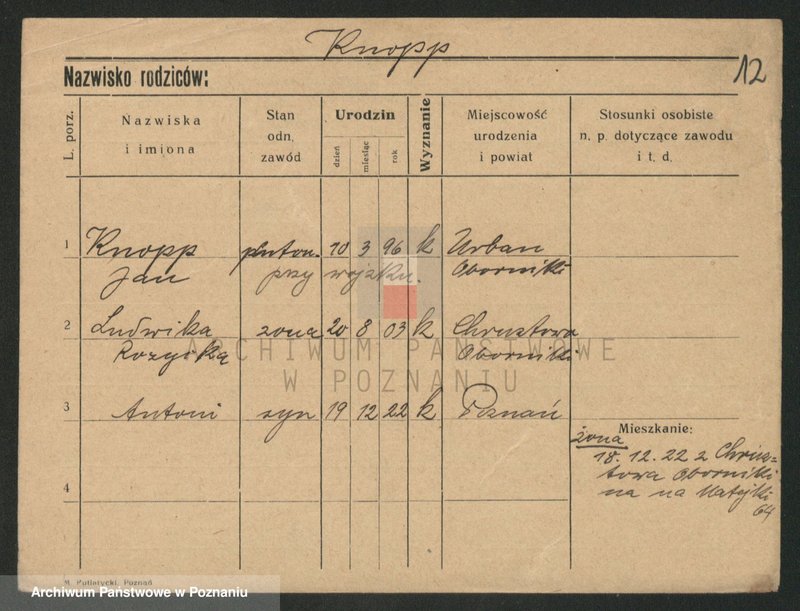 Knopp
12
Nazwisko rodziców:
L. porz.
Nazwiska
i imiona
Stan
odn.
zawód
Urodzin
dzień
miesiąc
rok
Wyznanie
Miejscowość
urodzenia
i powiat
Stosunki osobiste
n. p. dotyczące zawodu
i t. d.
1 Knopp pluton. 10 3 96 k Urban
Jan przy wojsku. Oborniki
2 Ludwika żona 20 8 03 k Chrustowa
Oborniki
3 Antoni syn 19 12 22 k Poznań
Mieszkanie:
żona
18. 12. 22 z Chrus-
towa Oborniki
na na Matejki
64
4
ARCHIWUM PAŃSTWOWE
W POZNANIU
M. Putiatycki, Poznań
Archiwum Państwowe w Poznaniu